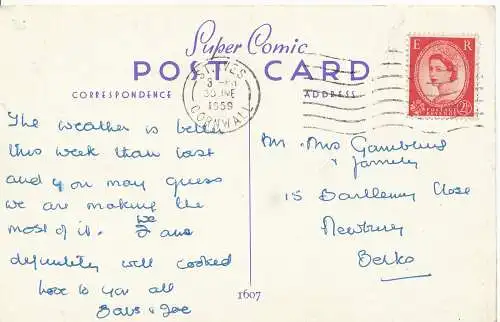 Super Comic
POST CARD
CORRESPONDENCE
ADDRESS
ST. IVES
30 JNE
1959
CORNWALL
E R
The weather is better
this week than last
and you may guess
we are making the
most of it. We are
definitely well cooked
love to you all
Babs & Joe
Mr & Mrs
& family
15 Close
Newbury
Berks
1607